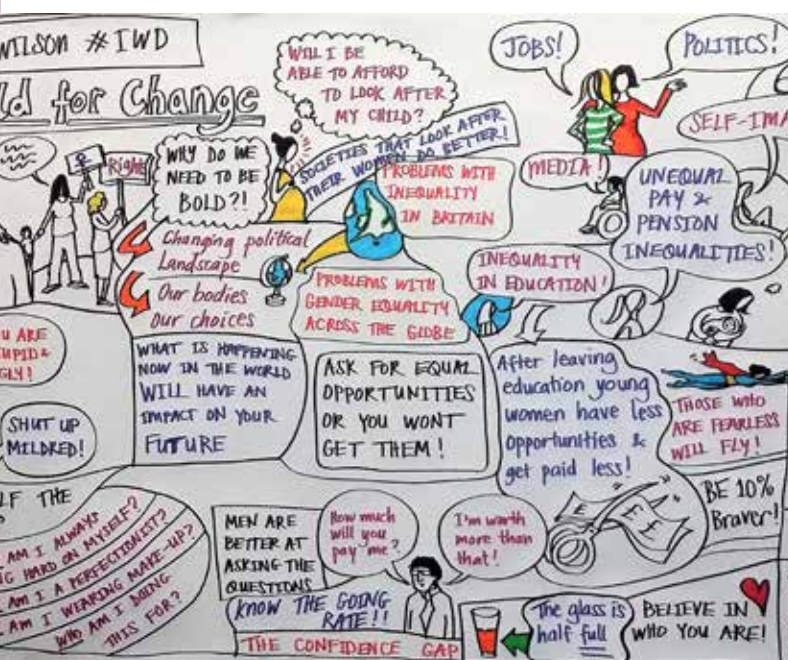 WILSON #IWD
ld for Change
Rights
WHY DO WE
NEED TO BE
BOLD?!
WILL I BE
ABLE TO AFFORD
TO LOOK AFTER
MY CHILD?
SOCIETIES THAT LOOK AFTER
THEIR WOMEN DO BETTER!
PROBLEMS WITH
INEQUALITY
IN BRITAIN
JOBS!
POLITICS!
SELF-IMA
MEDIA!
UNEQUAL
PAY &
PENSION
INEQUALITIES!
Changing political
Landscape
Our bodies
Our choices
PROBLEMS WITH
GENDER EQUALITY
ACROSS THE GLOBE
INEQUALITY
IN EDUCATION!
U ARE
UPID &
GLY!
SHUT UP
MILDRED!
WHAT IS HAPPENING
NOW IN THE WORLD
WILL HAVE AN
IMPACT ON YOUR
FUTURE
ASK FOR EQUAL
OPPORTUNITIES
OR YOU WONT
GET THEM!
After leaving
education young
women have less
opportunities &
get paid less!
THOSE WHO
ARE FEARLESS
WILL FLY!
BE 10%
Braver!
£
£ £
LF THE
AM I ALWAYS
NG HARD ON MYSELF?
AM I A PERFECTIONIST?
AM I WEARING MAKE-UP?
WHO AM I DOING
THIS FOR?
MEN ARE
BETTER AT
ASKING THE
QUESTIONS
How much
will you
pay me?
I'm worth
more than
that!
KNOW THE GOING
RATE!!
THE CONFIDENCE GAP
The glass is
half full
BELIEVE IN
WHO YOU ARE!